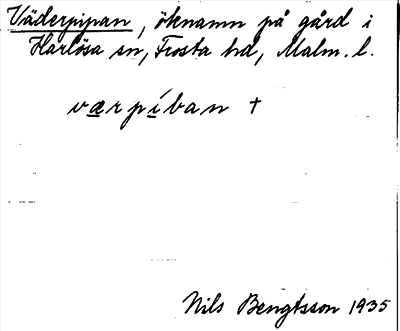 Väderpipan, öknamn på gård i
Harlösa sn, Frosta hd, Malm. l.
værpíban †
Nils Bengtsson 1935